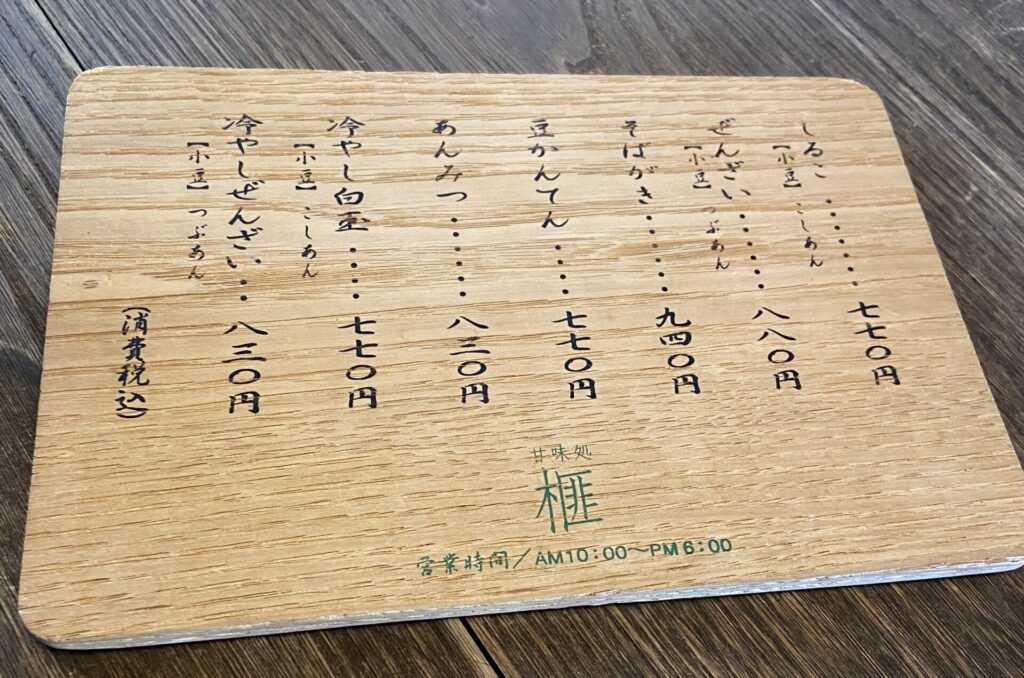 しるこ・・・・・・七七〇円
【小豆】こしあん
ぜんざい・・・・・八八〇円
【小豆】つぶあん
そばがき・・・・・九四〇円
豆かんてん・・・・七七〇円
あんみつ・・・・・八三〇円
冷やし白玉・・・・七七〇円
【小豆】こしあん
冷やしぜんざい・・八三〇円
【小豆】つぶあん
(消費税込)
甘味処
榧
営業時間/AM10:00〜PM6:00